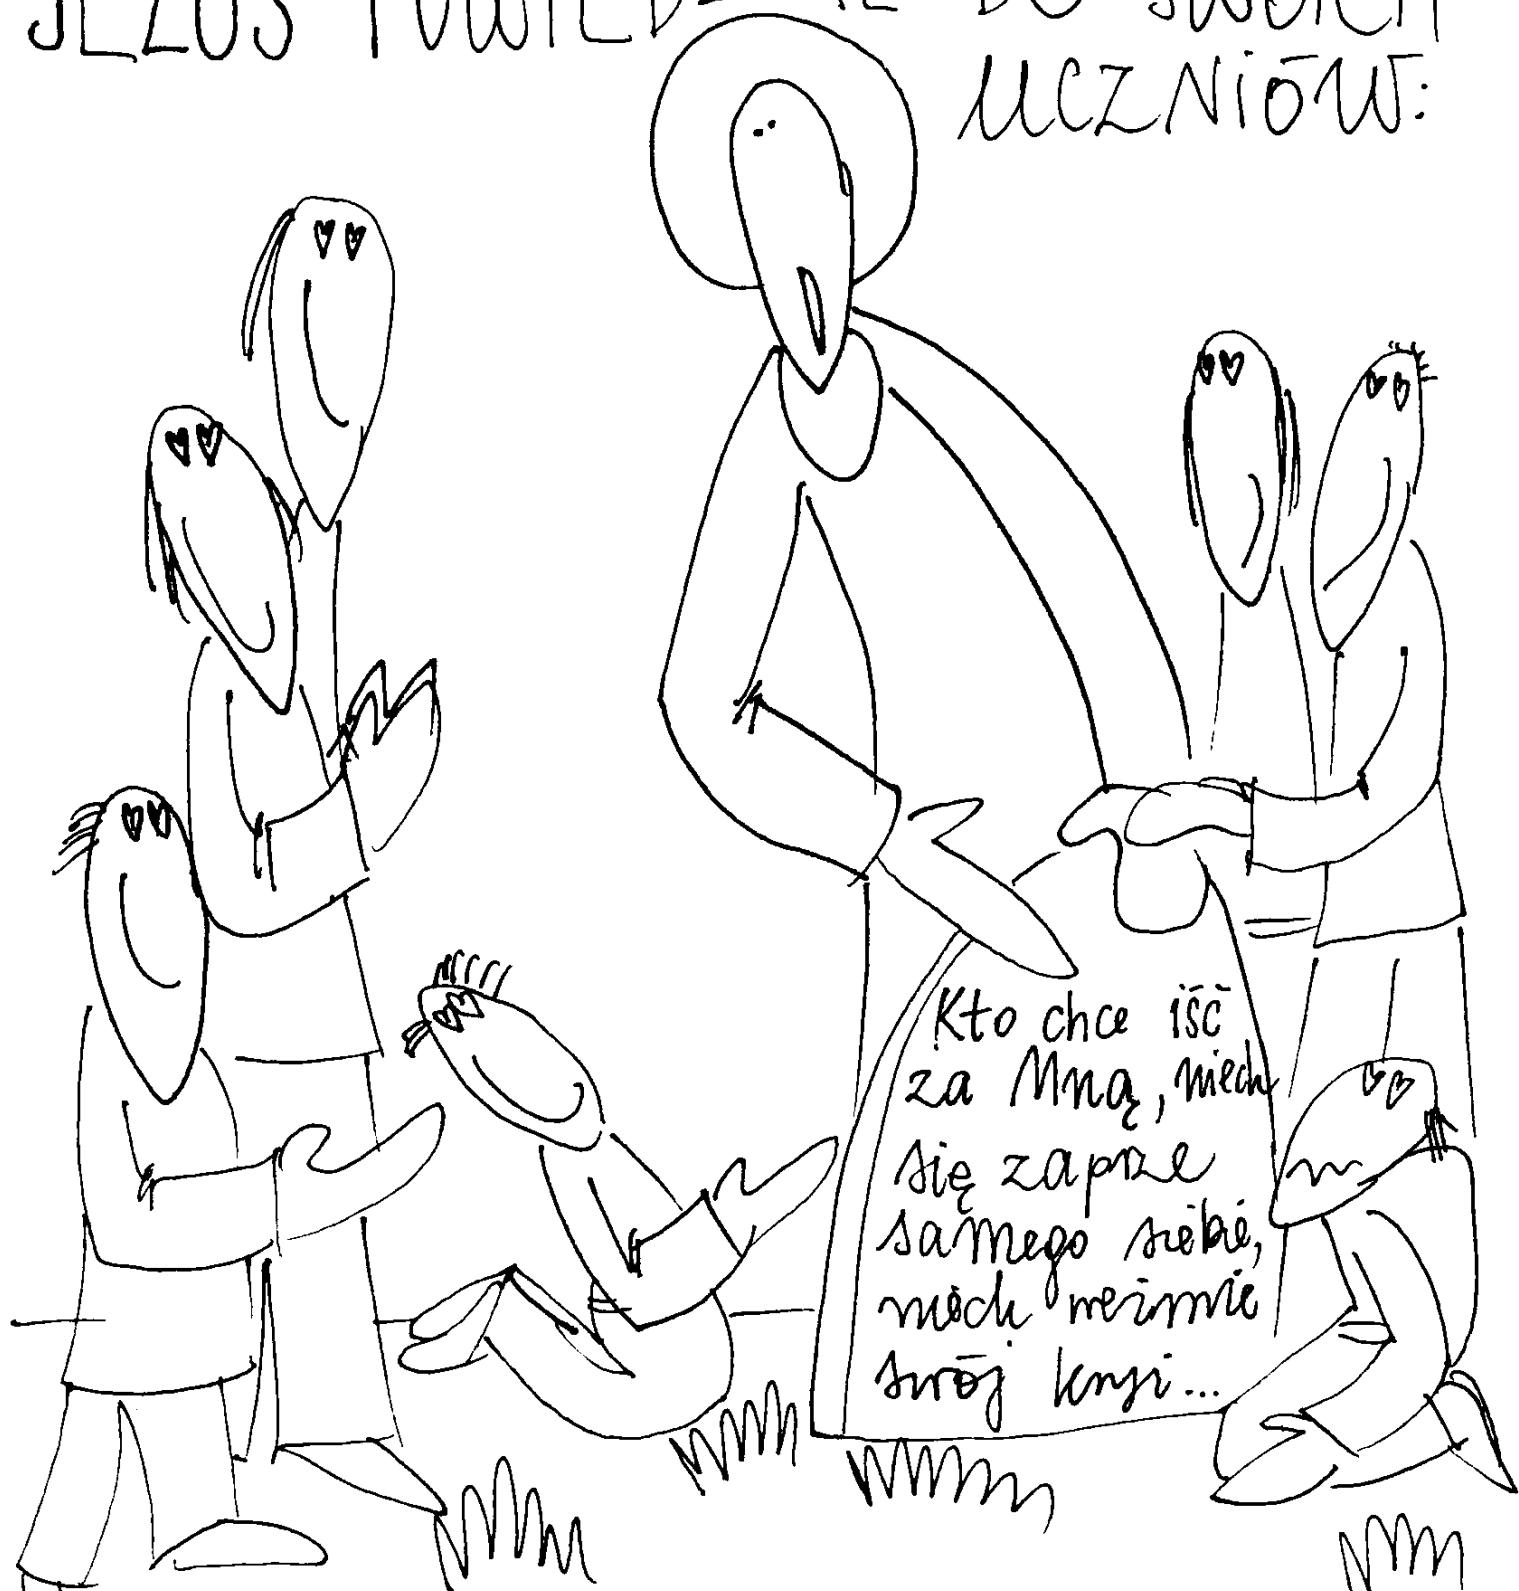 JEZUS POWIEDZIAŁ DO SWOICH
UCZNIÓW:
Kto chce iść
za Mną, niech
się zaprze
samego siebie,
niech weźmie
swój krzyż...